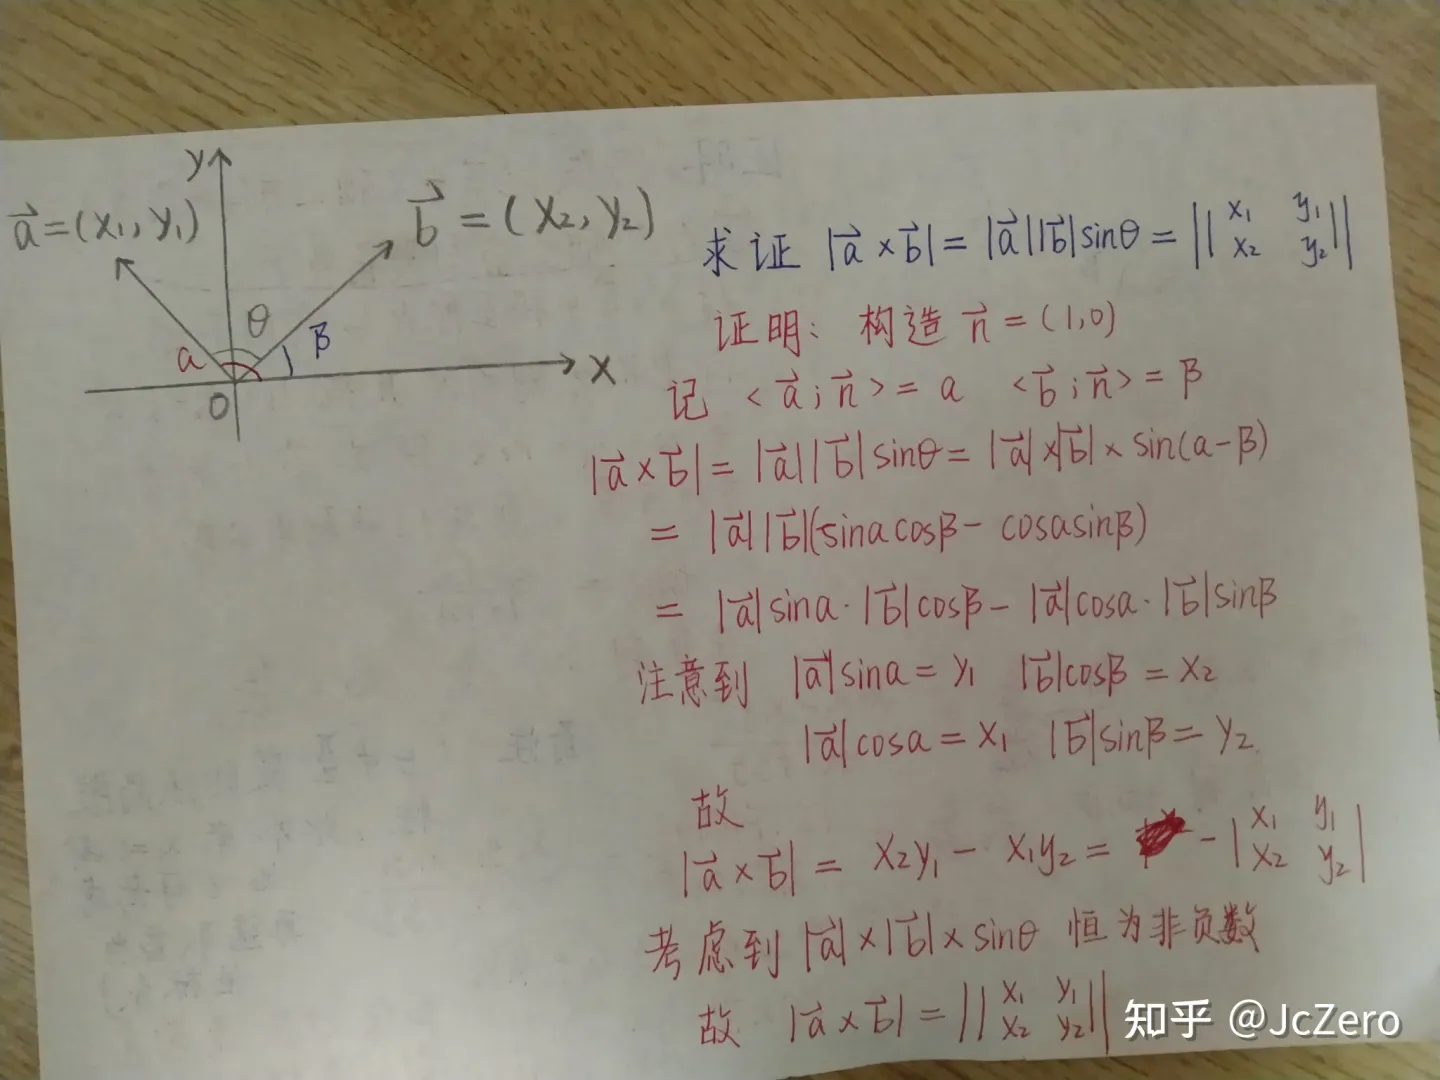 y
a⃗=(x₁, y₁)
b⃗ = (x₂, y₂)
θ
β
a
x
O
求证 |a⃗ × b⃗| = |a⃗||b⃗|sinθ = || x₁ y₁
x₂ y₂ ||
证明: 构造 n⃗ = (1,0)
记 <a⃗; n⃗> = a <b⃗; n⃗> = β
|a⃗ × b⃗| = |a⃗||b⃗|sinθ = |a⃗|×|b⃗| × sin(a-β)
= |a⃗||b⃗|(sinacosβ - cosasinβ)
= |a⃗|sina·|b⃗|cosβ - |a⃗|cosa·|b⃗|sinβ
注意到 |a⃗|sina = y₁ |b⃗|cosβ = x₂
|a⃗|cosa = x₁ |b⃗|sinβ = y₂
故
|a⃗ × b⃗| = x₂y₁ - x₁y₂ = -| x₁ y₁
x₂ y₂ |
考虑到 |a⃗|×|b⃗|×sinθ 恒为非负数
故 |a⃗ × b⃗| = || x₁ y₁
x₂ y₂ ||
知乎 @JcZero